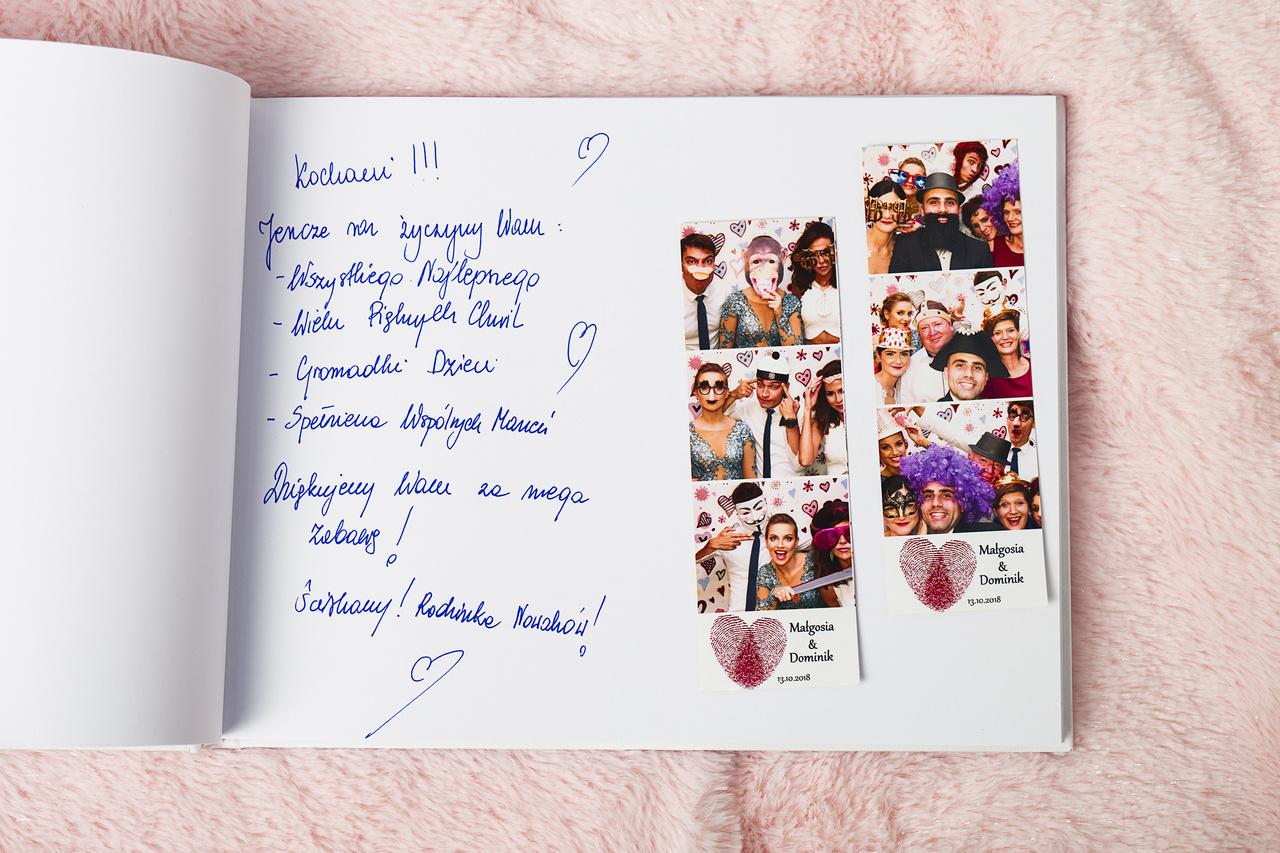 Kochani !!!
Jeszcze raz życzymy Wam :
- Wszystkiego Najlepszego
- Wielu Pięknych Chwil
- Gromadki Dzieci
- Spełnienia Wspólnych Marzeń
Dziękujemy Wam za mega
zabawę !
Ściskamy! Rodzinka Nowaków!
Małgosia
&
Dominik
13.10.2018
Małgosia
&
Dominik
13.10.2018